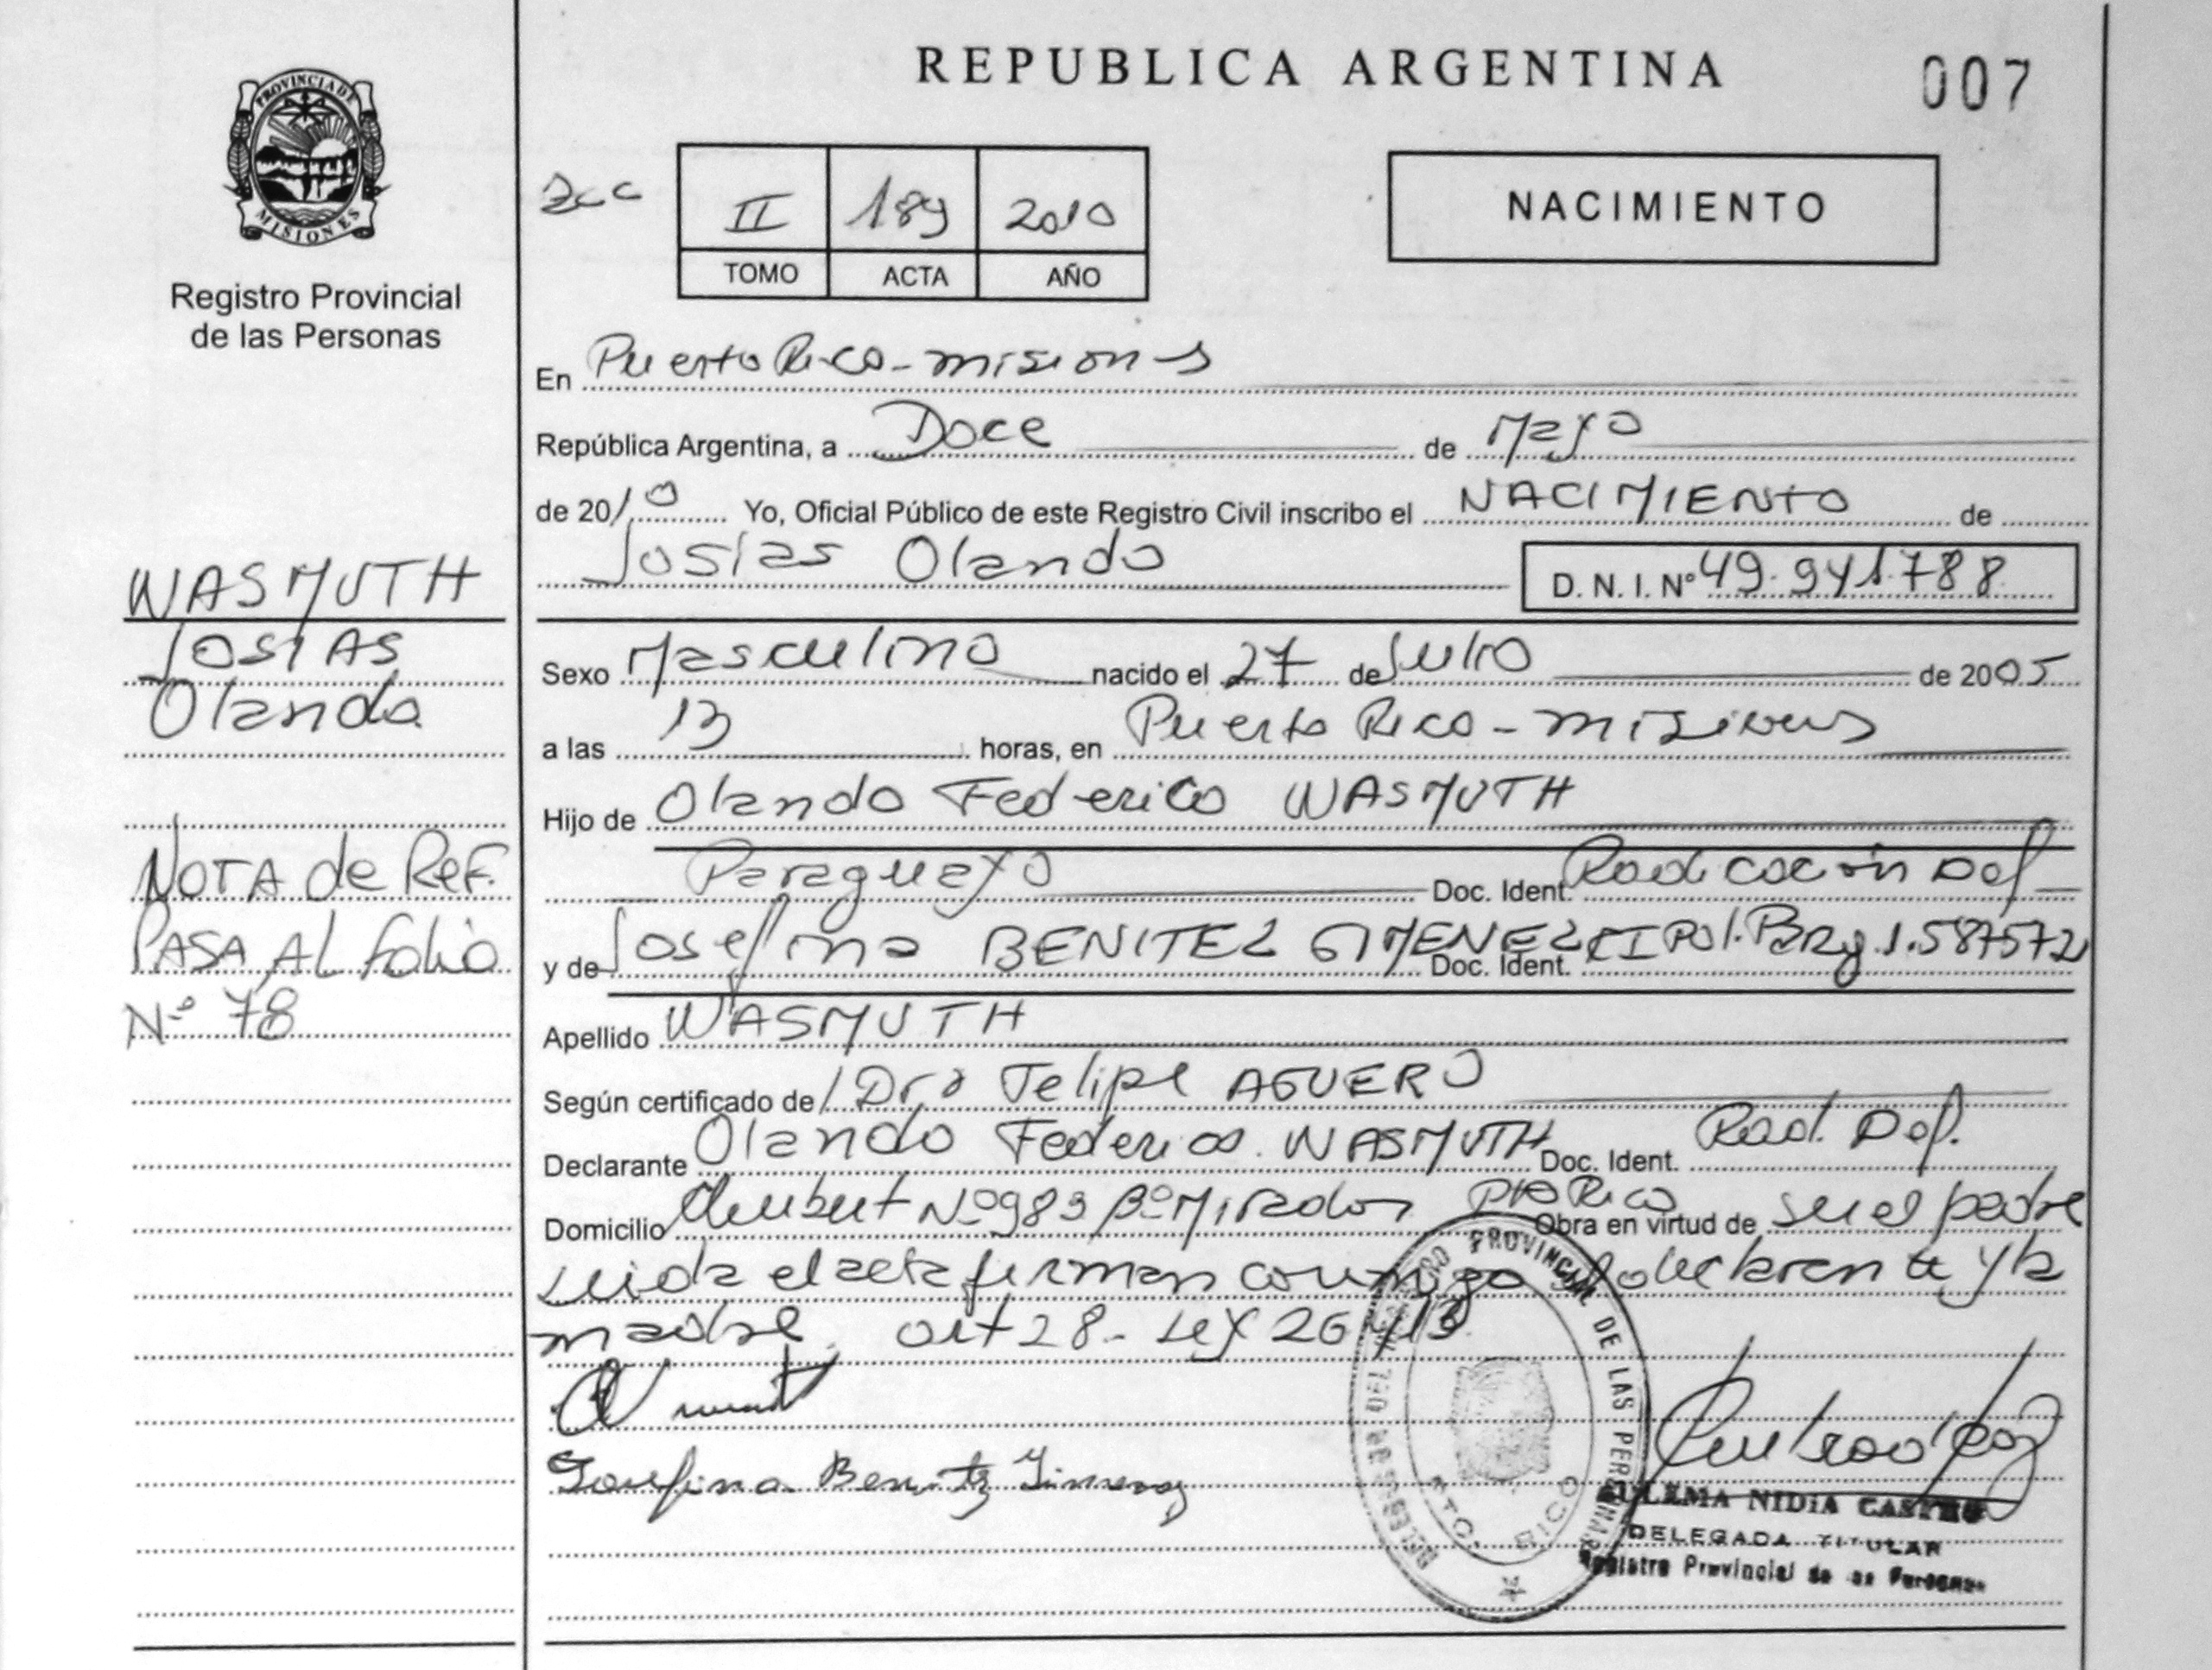 REPUBLICA ARGENTINA
007
PROVINCIA DE
MISIONES
Registro Provincial
de las Personas
II 189 2010
TOMO ACTA AÑO
NACIMIENTO
En Puerto Rico - misiones
República Argentina, a Doce de Mayo
de 2010 Yo, Oficial Público de este Registro Civil inscribo el NACIMIENTO de
Josias Olando D. N. I. Nº 49.941.788
WASMUTH
JOSIAS
Olando
Sexo Masculino nacido el 27 de Julio de 2005
a las 13 horas, en Puerto Rico - misiones
Hijo de Olando Federico WASMUTH
Paraguayo Doc. Ident. Radicación Def
y de Josefina BENITEZ GIMENEZ Doc. Ident. CI Pol. Parg. 1.587572
NOTA de REF.
PASA AL folio
Nº 78
Apellido WASMUTH
Según certificado de Dro Felipe AGUERO
Declarante Olando Federico WASMUTH Doc. Ident. Rad. Def.
Domicilio Nº 983 Bº Mirador Pto Rico Obra en virtud de ser el padre
leida el acta firman conmigo declarante y la
madre. art 28 - ley 26413
Josefina Benitez Gimenez
REGISTRO PROVINCIAL DE LAS PERSONAS
PTO. RICO
ZULEMA NIDIA CASTRO
DELEGADA TITULAR
Registro Provincial de las Personas